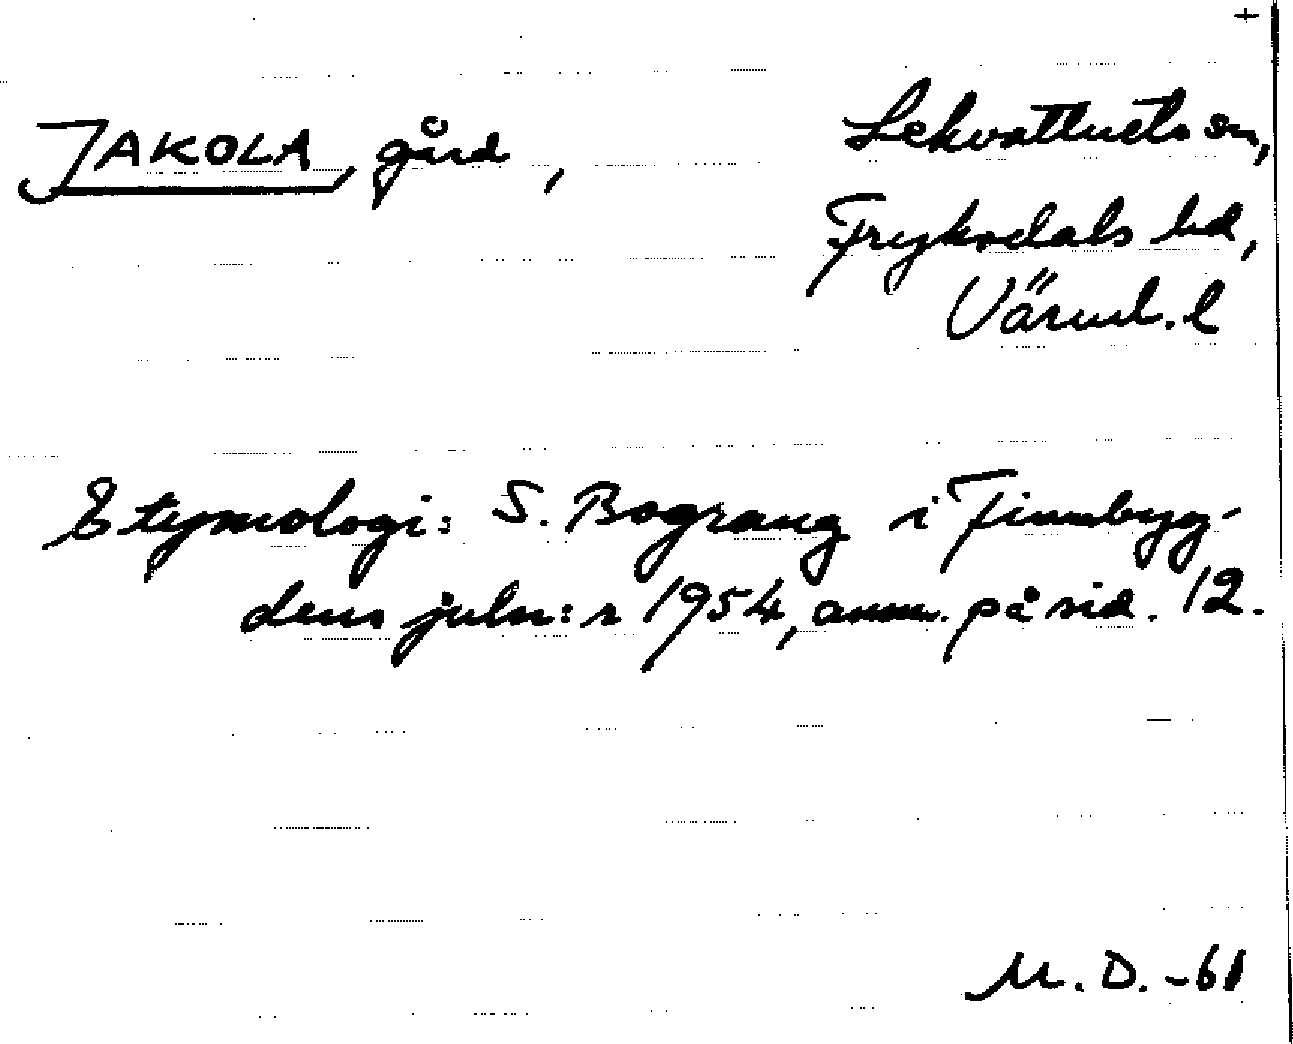 JAKOLA, gård,
Lekvattnets sn,
Fryksdals hd,
Värml. l
Etymologi: S. Bograng i Finnbyg-
dens juln:r 1954, anm. på sid. 12.
M. D. -61